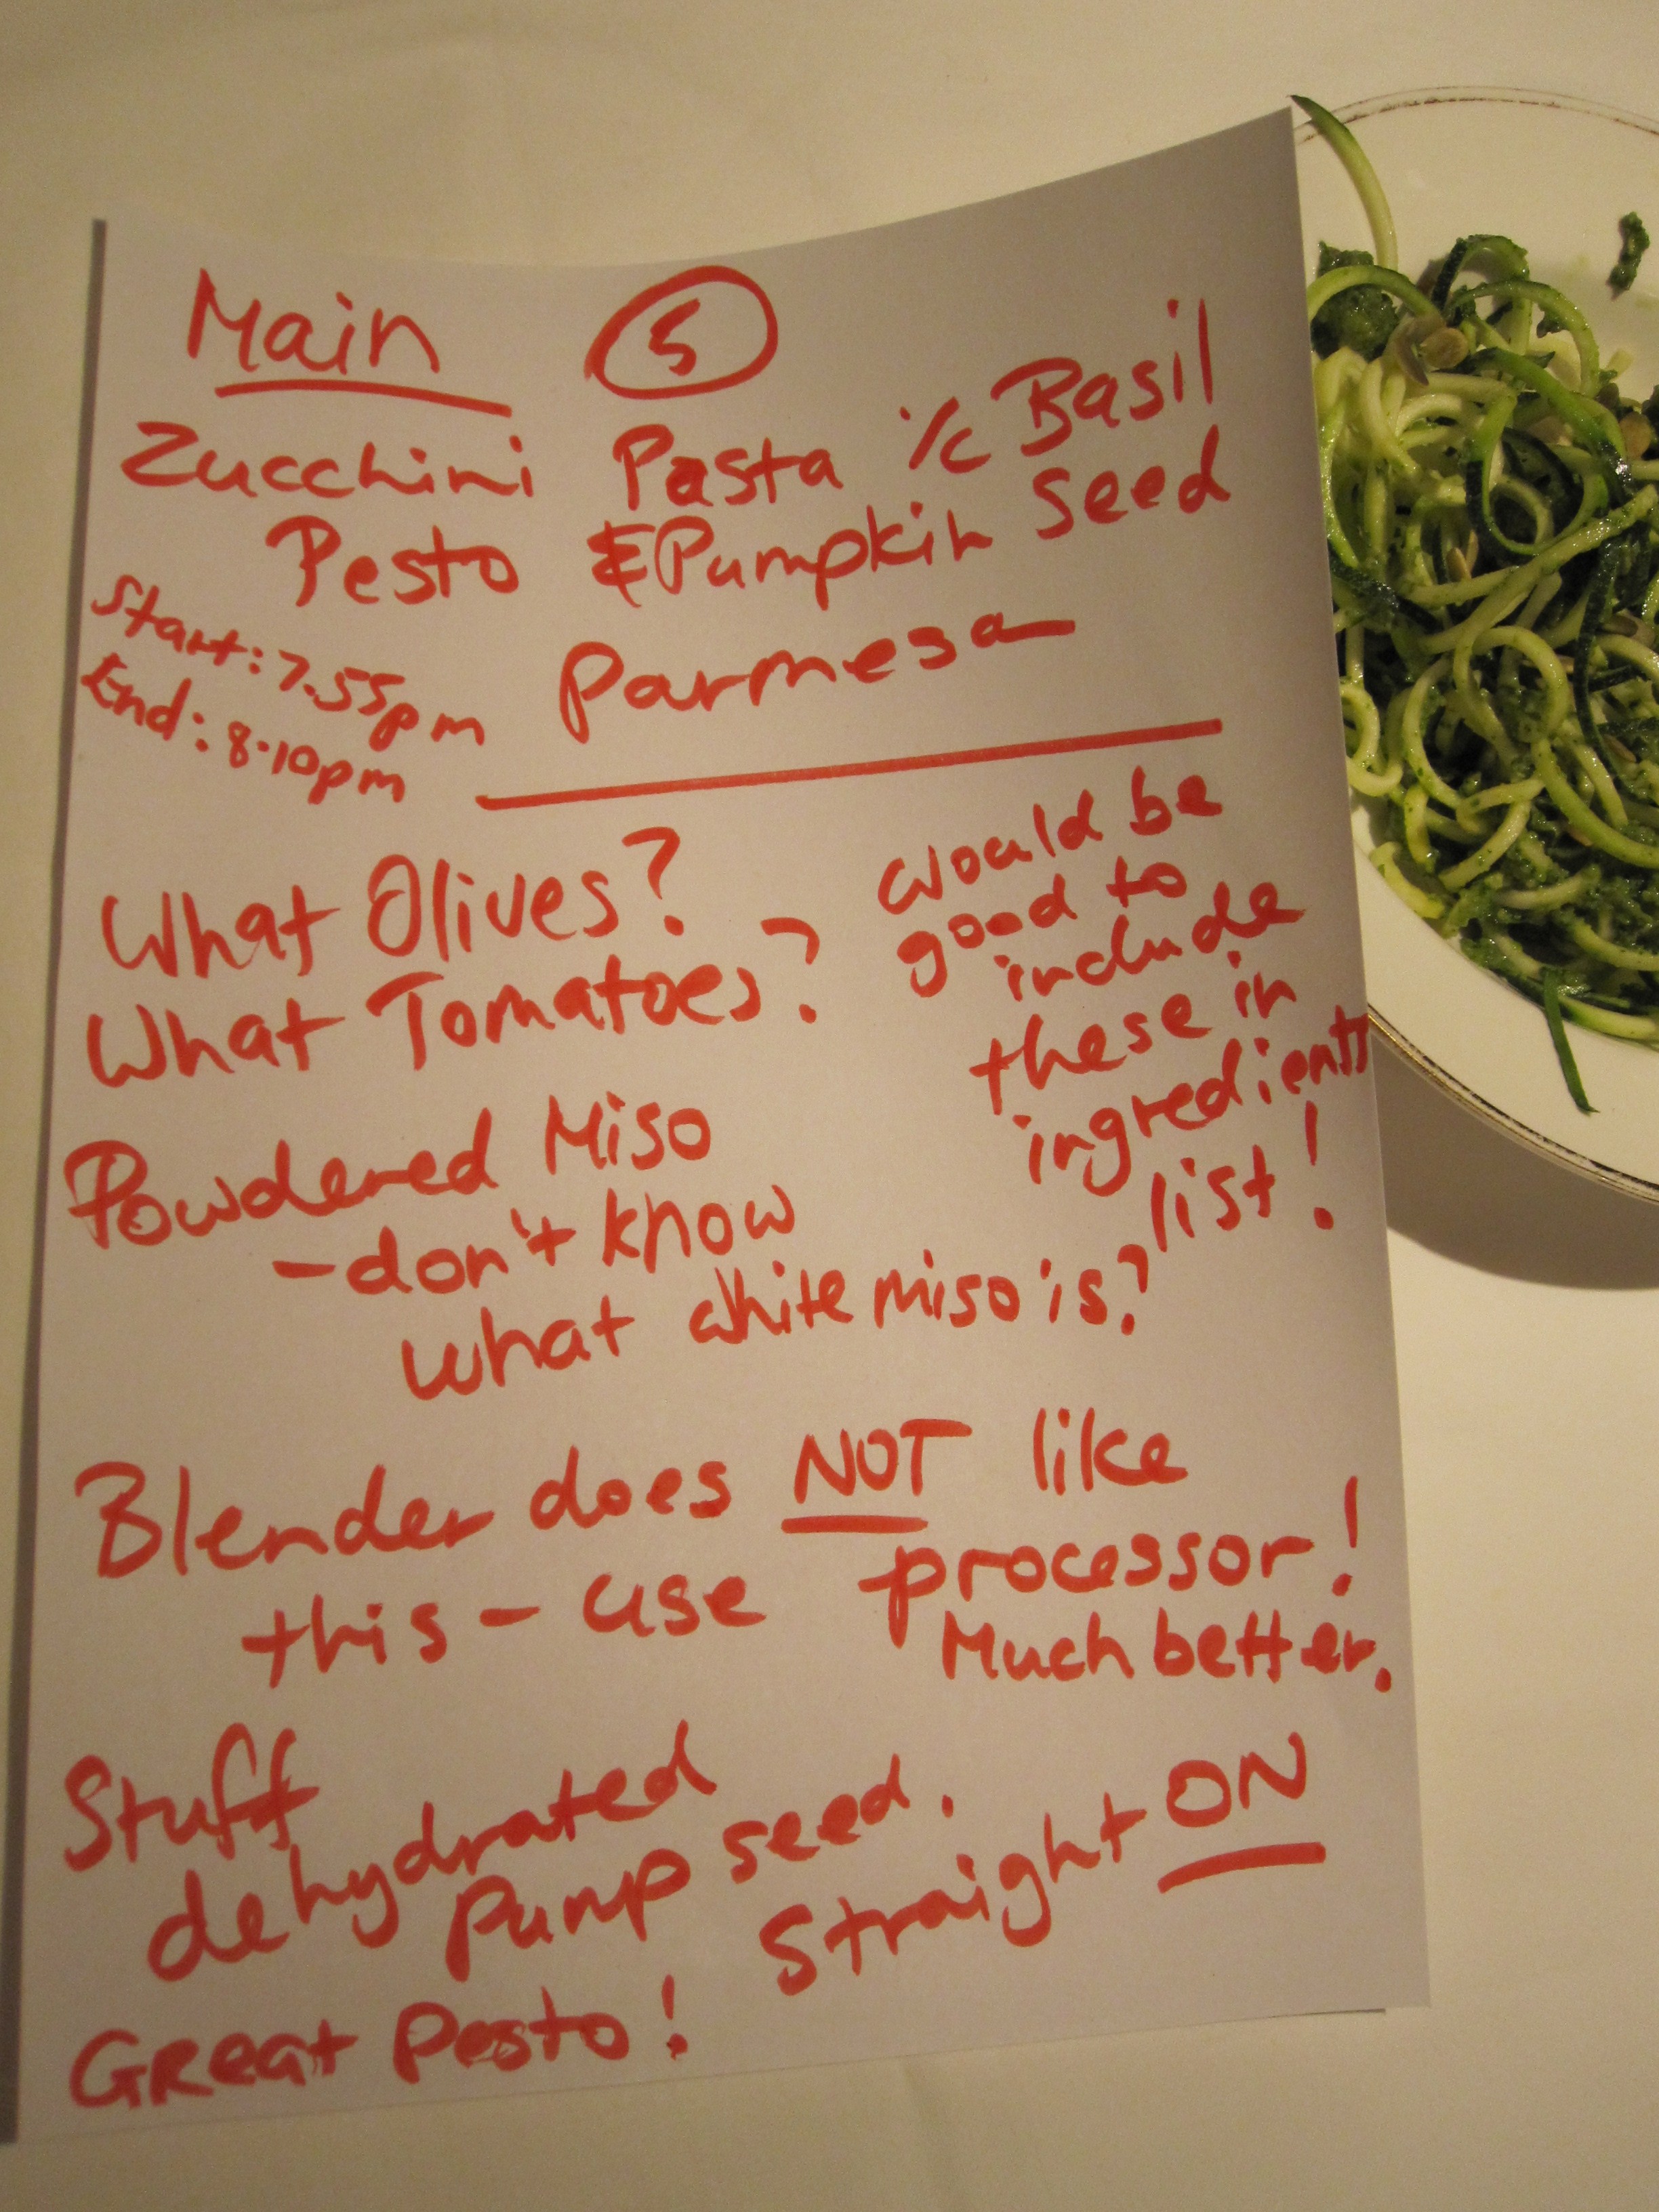 Main 5
Zucchini Pasta ⁒c Basil
Pesto & Pumpkin Seed
Parmesa
Start: 7.55pm
End: 8.10pm
What Olives?
What Tomatoes?
Would be
good to
include
these in
ingredients
list!
Powdered Miso
- don't know
what white miso is?
Blender does NOT like
this - use processor!
Much better.
Stuff
dehydrated
Pump seed.
Straight ON
GReat Pesto!